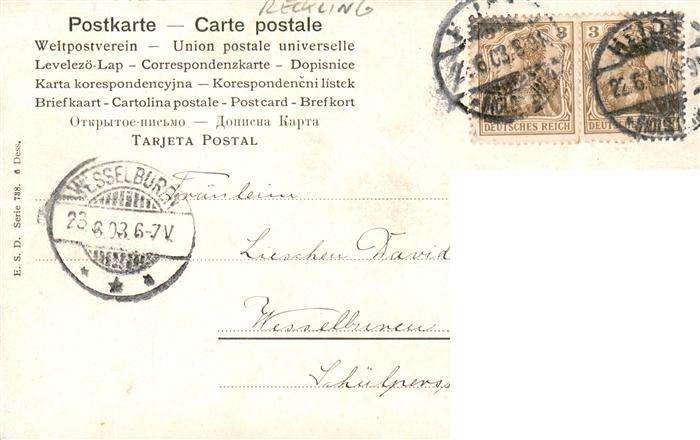 RECKLING
Postkarte — Carte postale
Weltpostverein — Union postale universelle
Levelezö-Lap — Correspondenzkarte — Dopisnice
Karta korespondencyjna — Korespondenční lístek
Briefkaart - Cartolina postale - Post card - Brefkort
Открытое-письмо — Дописна Карта
TARJETA POSTAL
3 3
DEUTSCHES REICH DEUTSCHES
22.6.03.
HEID
22.6.03.
WESSELBUREN
23.6.03.6-7V.
E. S. D. Serie 788. 6 Dess.
Fräulein
Lieschen David
Wesselburen